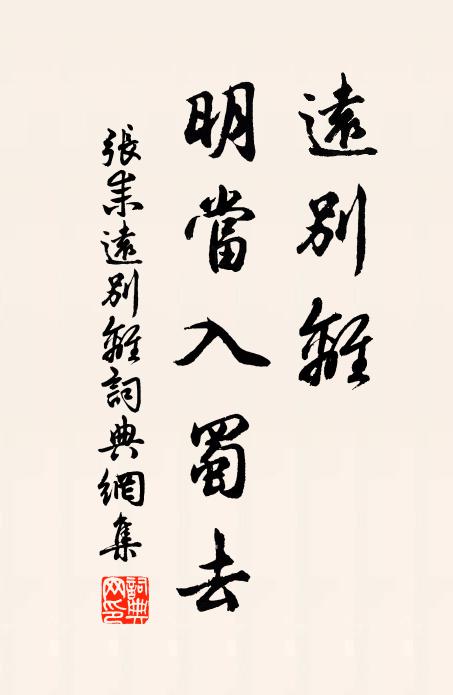 遠別離
明當入蜀去
張耒遠別離詞典網集
詞典網印